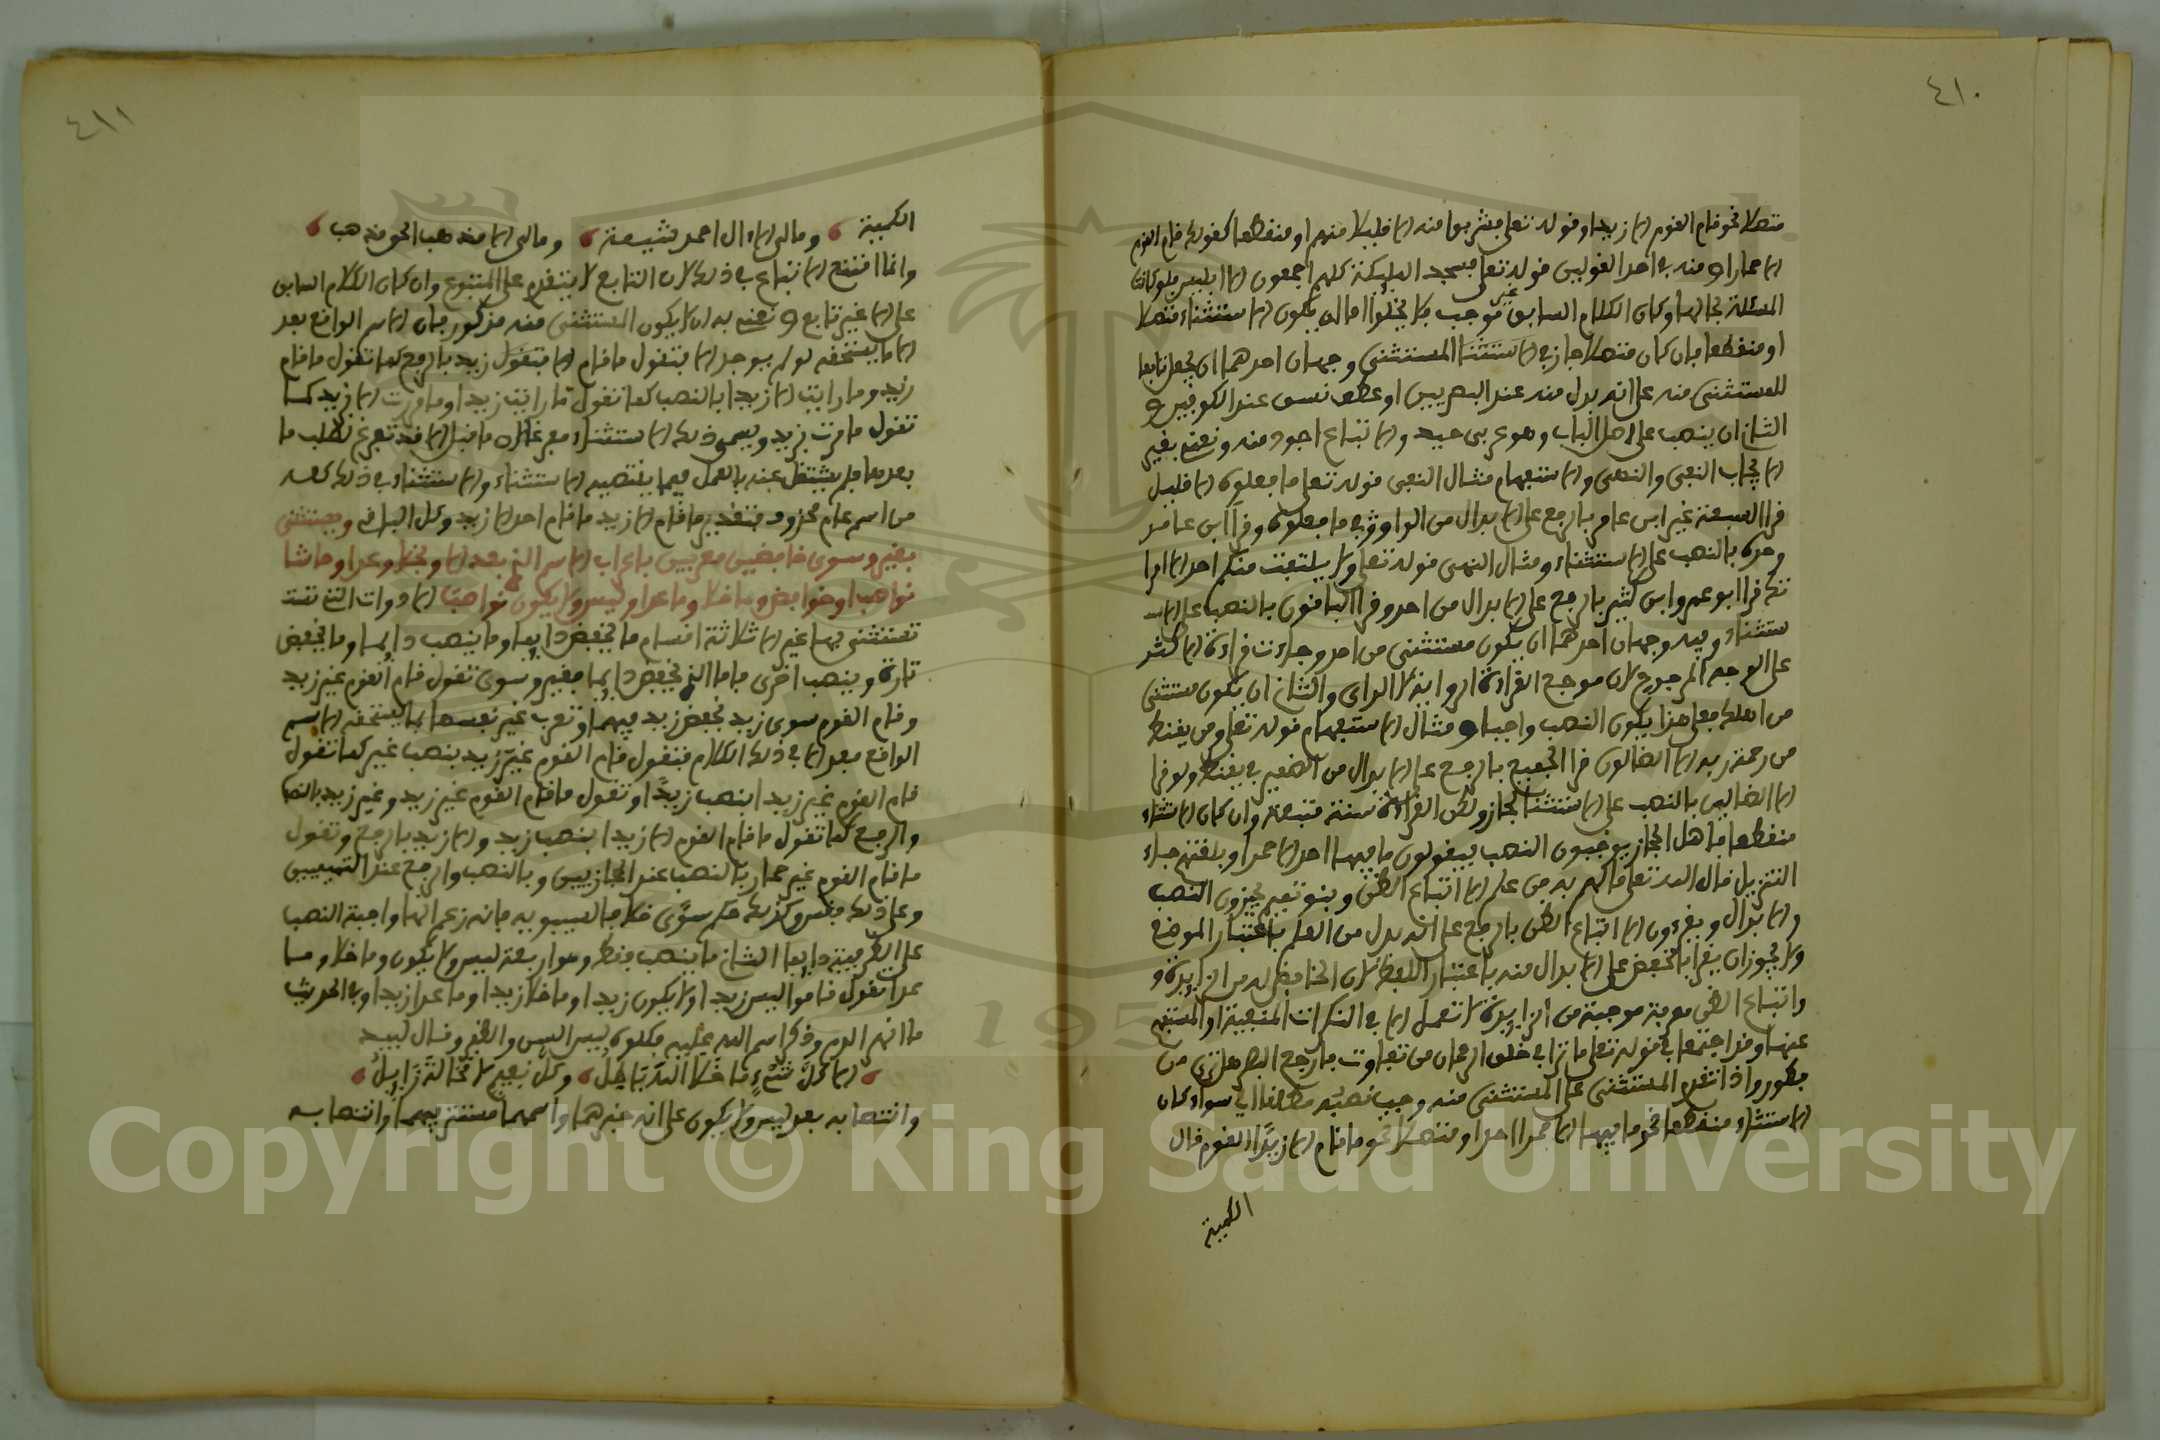 ٤١٠
متصلا نحو قام القوم الا زيدا وقوله تعلى فشربوا منه الا قليلا منهم او منقطعا كقولك قام القوم
الا حمارا ومنه في احد القولين قوله تعلى فسجد الملئكة كلهم اجمعون الا ابليس فلو كانت
المسئلة بحالها وكان الكلام السابق غير موجب فلا يخلوا اما ان يكون الاستثناء متصلا
او منقطعا فان كان متصلا جاز في الاستثنا المستثنى وجهان احدهما ان يجعل تابعا
للمستثنى منه على انه بدل منه عند البصريين او عطف نسق عند الكوفيين و
الثاني ان ينصب على اصل الباب وهو عربي جيد والاتباع اجود منه ونعني بغير
الايجاب النفي والنهي والاستفهام مثال النفي قوله تعلى ما فعلوه الا قليل
قرا السبعة غير ابن عامر بالرفع على الابدال من الواو في ما فعلوه وقرا ابن عامر
وحده بالنصب على الاستثناء ومثال النهي قوله تعلى ولا يلتفت منكم احد الا امرا
تك قرا ابو عمرو وابن كثير بالرفع على الابدال من احد وقرا الباقون بالنصب على الا
ستثناء وفيه وجهان احدهما ان يكون مستثنى من احد وجاءت قراءة الاكثر
على الوجه المرجوح لان مرجع القراءة الرواية لا الراي والثاني ان يكون مستثنى
من اهلك فعلى هذا يكون النصب واجبا ومثال الاستفهام قوله تعلى ومن يقنط
من رحمة ربه الا الضالون قرا الجميع بالرفع على الابدال من الضمير في يقنط ولو قرا
الا الضالين بالنصب على الاستثنا لجاز ولكن القراءة سنة متبعة وان كان الاستثناء
منقطعا فاهل الحجاز يوجبون النصب فيقولون ما فيها احد الا حمارا وبلغتهم جاء
التنزيل قال الله تعلى ما لهم به من علم الا اتباع الظن وبنو تميم يجيزون النصب
والابدال ويقرءون الا اتباع الظن بالرفع على انه بدل من العلم باعتبار الموضع
ولا يجوز ان يقرا بالخفض على الابدال منه باعتبار اللفظ لان الخافض له من الزايدة و
واتباع الظن معرفة موجبة من الزايدة لا تعمل الا في النكرات المنفية او المستفهم
عنها وقد اجتمعا في قوله تعلى ما ترا في خلق الرحمان من تفاوت فارجع البصر هل ترى من
فطور واذا تقدم المستثنى على المستثنى منه وجب نصبه مطلقا اي سواء كان
الاستثناء منقطعا نحو ما فيها الا حمرا احد او متصلا نحو ما قام الا زيدا القوم قال
الكميت
٤١١
الكميت ومالي الا ءال احمد شيعة ومالي الا مذهب الحق مذهب
وانما امتنع الاتباع في ذلك لان التابع لا يتقدم على المتبوع وان كان الكلام السابق
على الا غير تام و نعني به ان لا يكون المستثنى منه مذكورا فان الاسم الواقع بعد
الا ما يستحقه لو لم يوجد الا فتقول ما قام الا فتقول زيد بالرفع كما تقول ما قام
زيد وما رايت الا زيدا بالنصب كما تقول ما رايت زيدا وما مررت الا بزيد كما
تقول ما مررت بزيد ويسمى ذلك الاستثناء مفرغا لان ما قبل الا قد تفرغ لطلب ما
بعدها فلم يشتغل عنه بالعمل فيما يقتضيه الاستثناء والاستثناء في ذلك كله
من اسم عام محذوف فتقدير ما قام الا زيد ما قام احد الا زيد وكذا الباقي ويستثنى
بغير وسوى خافضين معربين باعراب الاسم الذي بعد الا وبخلا وعدا وحاشا
نواصبا وخوافض وبما خلا وما عدا وليس ولا يكون نواصبا الادوات التي تست
تستثنى بها غير الا ثلاثة اقسام ما يخفض دايما وما ينصب دايما وما يخفض
تارة وينصب اخرى فاما الذي يخفض دايما فغير وسوى تقول قام القوم غير زيد
وقام القوم سوى زيد بخفض زيد فيهما وتعرب غير نفسها بما يستحقه الاسم
الواقع بعد الا في ذلك الكلام فتقول قام القوم غير زيد بنصب غير كما تقول
قام القوم غير زيدا بنصب زيدا وتقول ما قام القوم غير زيد وغير زيد بالنصب
والرفع كما تقول ما قام القوم الا زيدا بنصب زيد والا زيد بالرفع وتقول
ما قام القوم غير حمار بالنصب عند الحجازيين وبالنصب والرفع عند التميميين
وعلى ذلك فقس وكذلك حكم سوى خلافا لسيبويه فانه زعم انها واجبة النصب
على الظرفية دايما الثاني ما ينصب فقط وهو اربعة ليس ولا يكون وما خلا وما
عدا تقول قاموا ليس زيدا ولا يكون زيدا وما خلا زيدا وما عدا زيدا وفي الحديث
ما انهر الدم وذكر اسم الله عليه فكلوه ليس السن والظفر وقال لبيد
الا كل شيء ما خلا الله باطل وكل نعيم لا محالة زايل
وانتصابه بعد ليس ولا يكون على انه خبرهما واسمهما مستتر فيهما وانتصابه